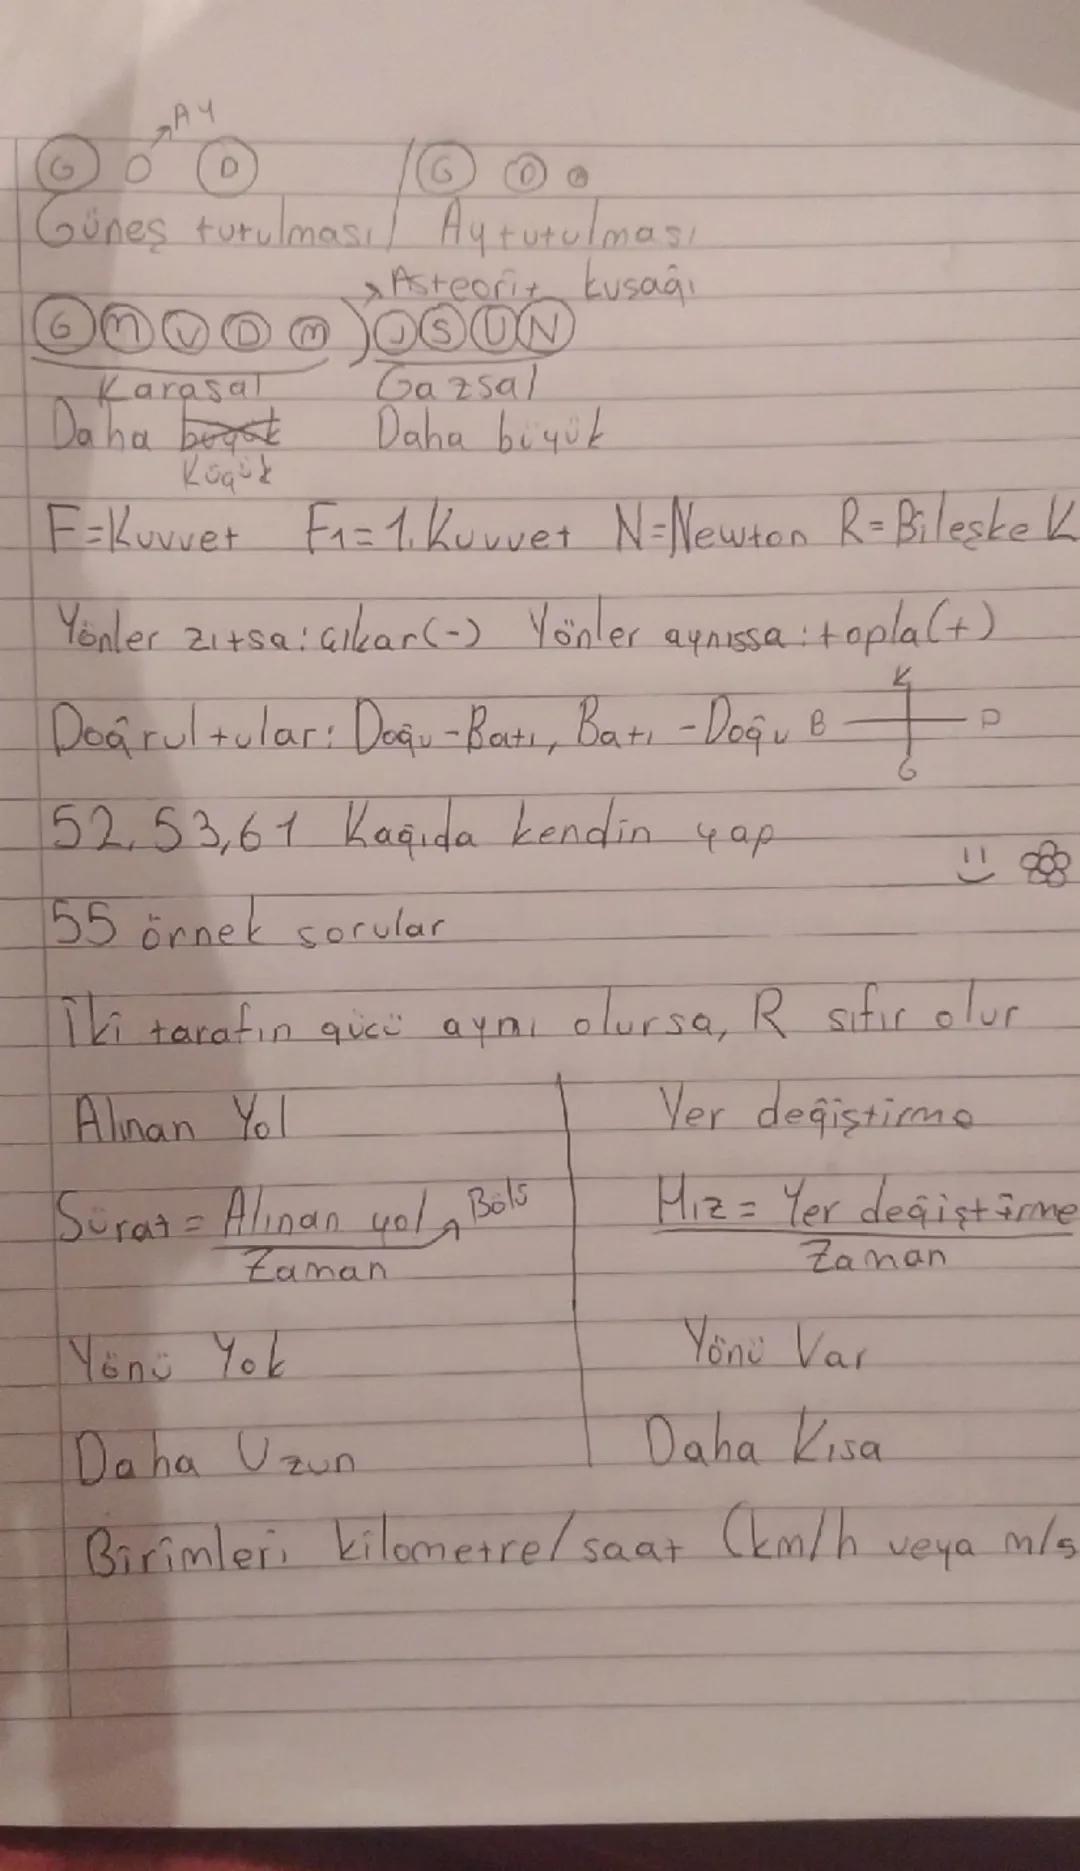 AY
G O D / G D A
Güneş tutulması / Ay tutulması
Asteorit kuşağı
G M V D M ) J S U N
Karasal Gazsal
Daha büyük Daha büyük
Küçük
F=Kuvvet F1=1.Kuvvet N=Newton R=Bileşke K
Yönler zıtsa: çıkar(-) Yönler aynıssa: topla(+)
K
Doğrultular: Doğu-Batı, Batı-Doğu B D
G
52, 53, 61 Kağıda kendin yap
55 örnek sorular
İki tarafın gücü aynı olursa, R sıfır olur
Alınan Yol Yer değiştirme
Sürat = Alınan yol Bölü Hız = Yer değiştirme
Zaman Zaman
Yönü Yok Yönü Var
Daha Uzun Daha Kısa
Birimleri kilometre/saat (km/h veya m/s